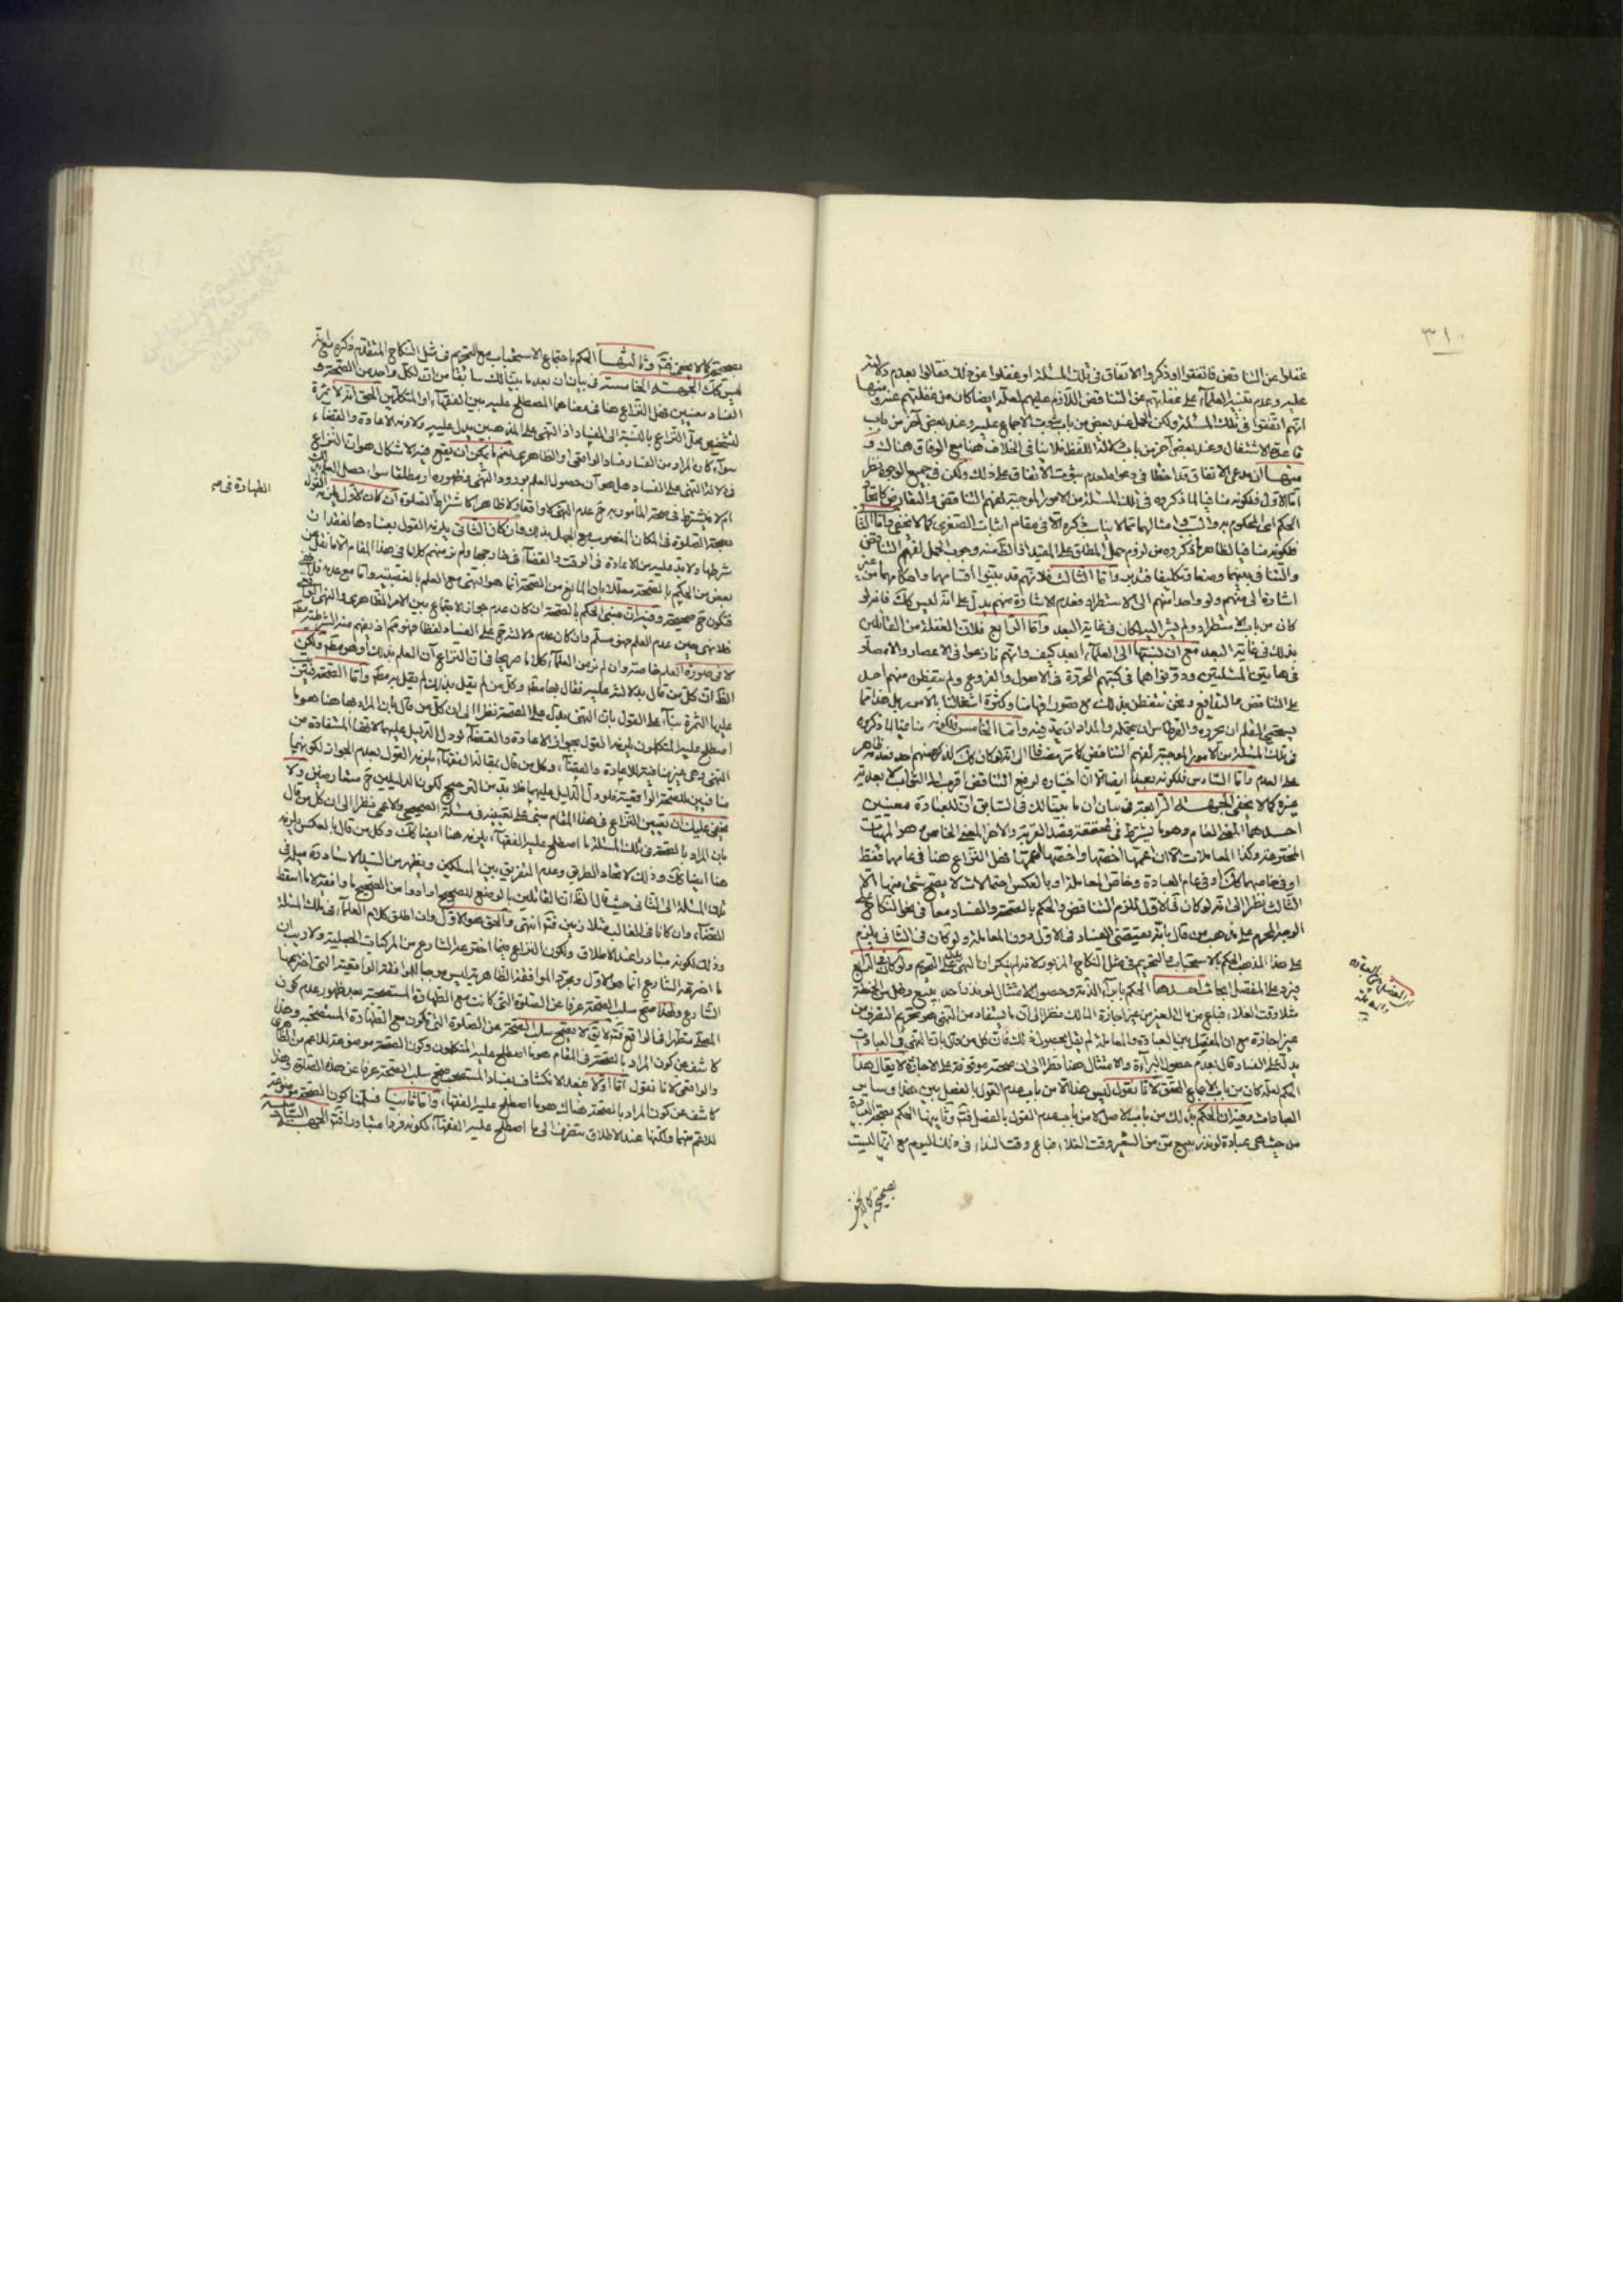 ٣١٠
غفلوا عن التناقض فاتفقوا او ذكروا الاتفاق فى تلك المسئلة او غفلوا عن ذلك فقالوا بعدم دلالته
عليه وعدم تنبيه العلماء على غفلتهم عن التناقض اللازم عليهم لعله ايضا كان من غفلتهم عنه ومنها
انهم اتفقوا فى تلك المسئلة ولكن لعل عند بعض من باب ثبوت الاجماع عليه وعند بعض آخر من باب
قاعدة الاشتغال وعند بعض آخر من باب دلالة اللفظ فلا ينافى الخلاف هنا مع الوفاق هناك و
منها ان مدعى الاتفاق قد اخطأ فى دعواه لعدم ثبوت الاتفاق على ذلك ولكن فى جميع الوجوه نظر
اما الاول فلكونه منافيا لما ذكروه فى تلك المسئلة من الامور الموجبة لفهم التناقض والتعارض كاتحاد
الحكم اى المحكوم به والسبب وامثالهما مما لا يناسب ذكره الا فى مقام اثبات الصغرى كما لا يخفى واما الثانى
فلكونه منافيا لظاهر ما ذكروه من لزوم حمل المطلق على المقيد اذ الظاهر منه وجوب الحمل لفهم التناقض
والتنافى بينهما وصفا وتكليفا فتدبر واما الثالث فلانهم قد بينوا اقسامهما واحكامهما من غير
اشارة الى منهم ولو واحدا منهم الى الاستطراد فعدم الاشارة منهم يدل على انه ليس كذلك فانه لو
كان من باب الاستطراد ولم يشر اليه لكان فى غاية البعد واما الرابع فلان الغفلة من القائلين
بذلك فى غاية البعد مع ان نسبتها الى العلماء ابعد كيف وانهم نازعوا فى الاعصار والامصار
فى هاتين المسئلتين ودونوا هما فى كتبهم المحررة فى الاصول والفروع ولم يتفطن منهم احد
على التناقض والتدافع ونحن نتفطن بذلك مع قصور افهامنا وكثرة اشتغالنا بالامور بل هذا مما
يستحيى القلم ان يحرره والقرطاس ان يحتمله والمداد ان يمد فيه واما الخامس فلكونه منافيا لما ذكروه
فى تلك المسئلة من الامور الموجبة لفهم التناقض كما مر مضافا الى انه لو كان كذلك لذكره منهم احد فعدمه ظاهر
على العدم واما السادس فلكونه بعيدا ايضا الا ان اختياره لرفع التناقض اقرب الى الثواب لابعدية
غيره كما لا يخفى الجهة الرابعة فى بيان ان ما بينا لك فى السابق ان للعبادة معنيين
احدهما المعنى العام وهو ما يشترط فى تحققه قصد القربة والاخر المعنى الخاص وهو المهيات
المخترعة وكذا المعاملات الا ان اعمها اخصها واخصها اعمها فهل النزاع هنا فى عامهما فقط
او فى خاصهما كذلك او فى عام العبادة وخاص المعاملة او بالعكس احتمالات لا يصح شئ منها الا
الثالث نظرا الى انه لو كان فى الاول للزم التناقض والحكم بالصحة والفساد معا فى نحو النكاح على
الوجه المحرم على مذهب من قال بانه يقتضى الفساد فى الاول دون المعاملة ولو كان فى الثانى يلزم
على هذا المذهب الحكم بالاستحباب والتحريم فى مثل النكاح المزبور
فيرد على المفصل ابحاث احدها الحكم ببراءة الذمة وحصول الامتثال لو نذر ناذر ببيع وطل من الحنطة
مثلا وقت الغلاء فباع من مال الغير من غير اجازة المالك نظرا الى ان ما يستفاد من النهى هو تحريم التصرف من
غير اجازة مع ان المفصل بين العبادة والمعاملة لم يقل بحصول ذلك فان كل من قال بان النهى فى العبادات
يدل على الفساد قال بعدم حصول البراءة والامتثال هنا نظرا الى ان صحته موقوفة على الاجازة لا يقال هذا
الحكم لعله كان من باب الاجماع المحقق لانا نقول ليس هذا الا من باب عدم القول بالفصل بين هذا وساير
العبادات وفيه ان الحكم بذلك من باب الاصل لا من باب عدم القول بالفصل فتأمل وثانيها الحكم بصحة العبادة
من حيث هى عبادة لو نذر ببيع من من الشعير وقت الغلاء فباع وقت النداء فى ذلك اليوم مع انها ليست
بصحيحة كما لا يخفى
بصحيحة كما لا يخفى فتأمل وثالثها الحكم باجتماع الاستحباب مع التحريم فى مثل النكاح المتقدم ذكره مع انه
ليس كذلك الجهة الخامسة فى بيان ان بعد ما بينا لك سابقا من ان لكل واحد من الصحة و
الفساد معنيين فهل النزاع هنا فى معناهما المصطلح عليه بين الفقهاء او المتكلمين الحق انه لا ثمرة
لتشخيص محل النزاع بالنسبة الى الفساد اذ النهى على المذهبين يدل عليه ولا زمه الاعادة والقضاء
سواء كان المراد من الفساد فساد الواقعى او الظاهرى نعم ما يمكن ان يقع فيه الاشكال هو ان النزاع
فى دلالة النهى على الفساد هل هو آن حصول العلم بورود النهى وظهوره او مطلقا سواء حصل العلم بذلك
ام لا فيشترط فى صحة المأمور به ح عدم النهى
الطهارة فى صه
بصحة الصلوة فى المكان المغصوب مع الجهل بذلك وان كان الثانى يلزمه القول بفسادها لفقدان
شرطها ولا بد عليه من الاعادة فى الوقت والقضاء فى خارجها ولم نر منهم كلاما فى هذا المقام الا ما نقل عن
بعض من الحكم بالصحة معللا بان المانع من الصحة انما هو النهى مع العلم بالغصبية واما مع عدمه فلا نهى
فتكون ح صحيحة وفيه ان مبنى الحكم بالصحة ان كان عدم جواز الاجتماع بين الامر الظاهرى والنهى الواقعى
فلا نهى حين عدم العلم فهو مسلم وان كان عدم دلالته ح على الفساد لفظا فهو ممنوع اذ يفهم منه الشرطية مطلقا
لا فى صورة العلم خاصة وان لم نر من العلماء كلاما صريحا فى ان النزاع آن العلم بذلك او هو مطلقا ولكن
الظاهر ان كل من قال بدلالته عليه فقال بها مطلقا وكل من لم يقل بذلك لم يقل به مطلقا واما الصحة فيترتب
عليها الثمرة بناء على القول بان النهى يدل على الصحة نظرا الى ان كل من قال بان المراد بها هنا هو ما
اصطلح عليه المتكلمون يلزمه القول بجواز الاعادة والقضاء لو دل الدليل عليهما لاقتضاء المستفادة من
النهى وهى غير منافية للاعادة والقضاء وكل من قال بمقالة الفقهاء يلزمه القول بعدم الجواز لكونهما
منافيين للصحة الواقعية فلو دل الدليل عليهما فلا بد من الترجيح لكون الدليلين ح متعارضين ولا
يخفى عليك ان تعيين النزاع فى هذا المقام مبنى على تعيينه فى مسئلة الصحيحى والاعمى نظرا الى ان كل من قال
بان المراد بالصحة فى تلك المسئلة ما اصطلح عليه الفقهاء يلزمه هنا ايضا كذلك وكل من قال بالعكس يلزمه
هنا ايضا كذلك وذلك لاتحاد الطريق وعدم التفريق بين المسلكين ويظهر من السيد الاستاد مد ظله فى
تلك المسئلة الى الثانى حيث قال الظاهر ان القائلين بالوضع للصحيح ارادوا من الصحيح ما وافق لا ما اسقط
القضاء وان كانا فى الغالب متلازمين فتأمل انتهى والحق هو الاول وان اطلق كلام العلماء فى تلك المسئلة
وذلك لكونه متبادرا عند الاطلاق ولكون النزاع فيما اخترعه الشارع من المركبات الجعلية ولا ريب ان
ما اخترعه الشارع انما هو الاول ومجرد الموافقة الظاهرية ليس موجبا للموافقة الواقعية التى اخترعها
الشارع ولهذا صح سلب الصحة عرفا عن الصلوة التى كانت مع الطهارة المستصحبة بعد ظهور عدم كون
المصلى متطهرا فى الواقع فتأمل لا يقال لا يصح سلب الصحة عن الصلوة التى تكون مع الطهارة المستصحبة وهذا
كاشف عن كون المراد بالصحة فى المقام هو ما اصطلح عليه المتكلمون وكون الصحة موضوعة للاعم من الظاهرى
والواقعى لانا نقول اما اولا فبعد الانكشاف بفساد المستصحب صح سلب الصحة عرفا عن هذه الصلوة وهذا
كاشف عن كون المراد بالصحة هناك هو ما اصطلح عليه الفقهاء واما ثانيا فسلمنا كون الصحة موضوعة
للاعم منهما ولكنها عند الاطلاق ينصرف الى ما اصطلح عليه الفقهاء لكونه فردا متبادرا فتأمل الجهة السادسة